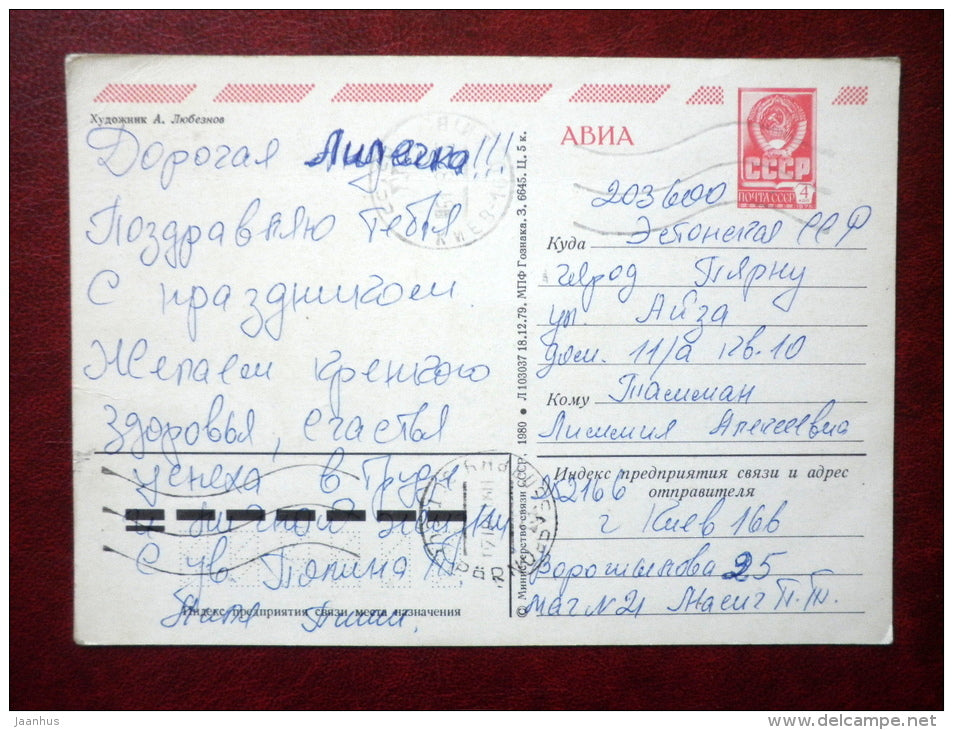 Художник А. Любезнов
Дорогая Лилечка!!!
Поздравляю Тебя
С праздником.
Желаем крепкого
здоровья, счастья
успеха в Труде
и личной жизни
С ув. Полина
Пиши.
Индекс предприятия связи места назначения
© Министерство связи СССР, 1980 ● Л 103037 18.12.79. МПФ Гознака. З. 6645. Ц. 5 к.
АВИА
СССР
ПОЧТА СССР 4
203600
Куда Эстонская ССР
город Пярну
ул. Айза
дом. 11/а кв. 10
Кому Тамман
Лиммия Алексеевна
Индекс предприятия связи и адрес
отправителя
252166
г Киев 166
Ворошилова 25
маг N 21
jaanhus
www.delcampe.net